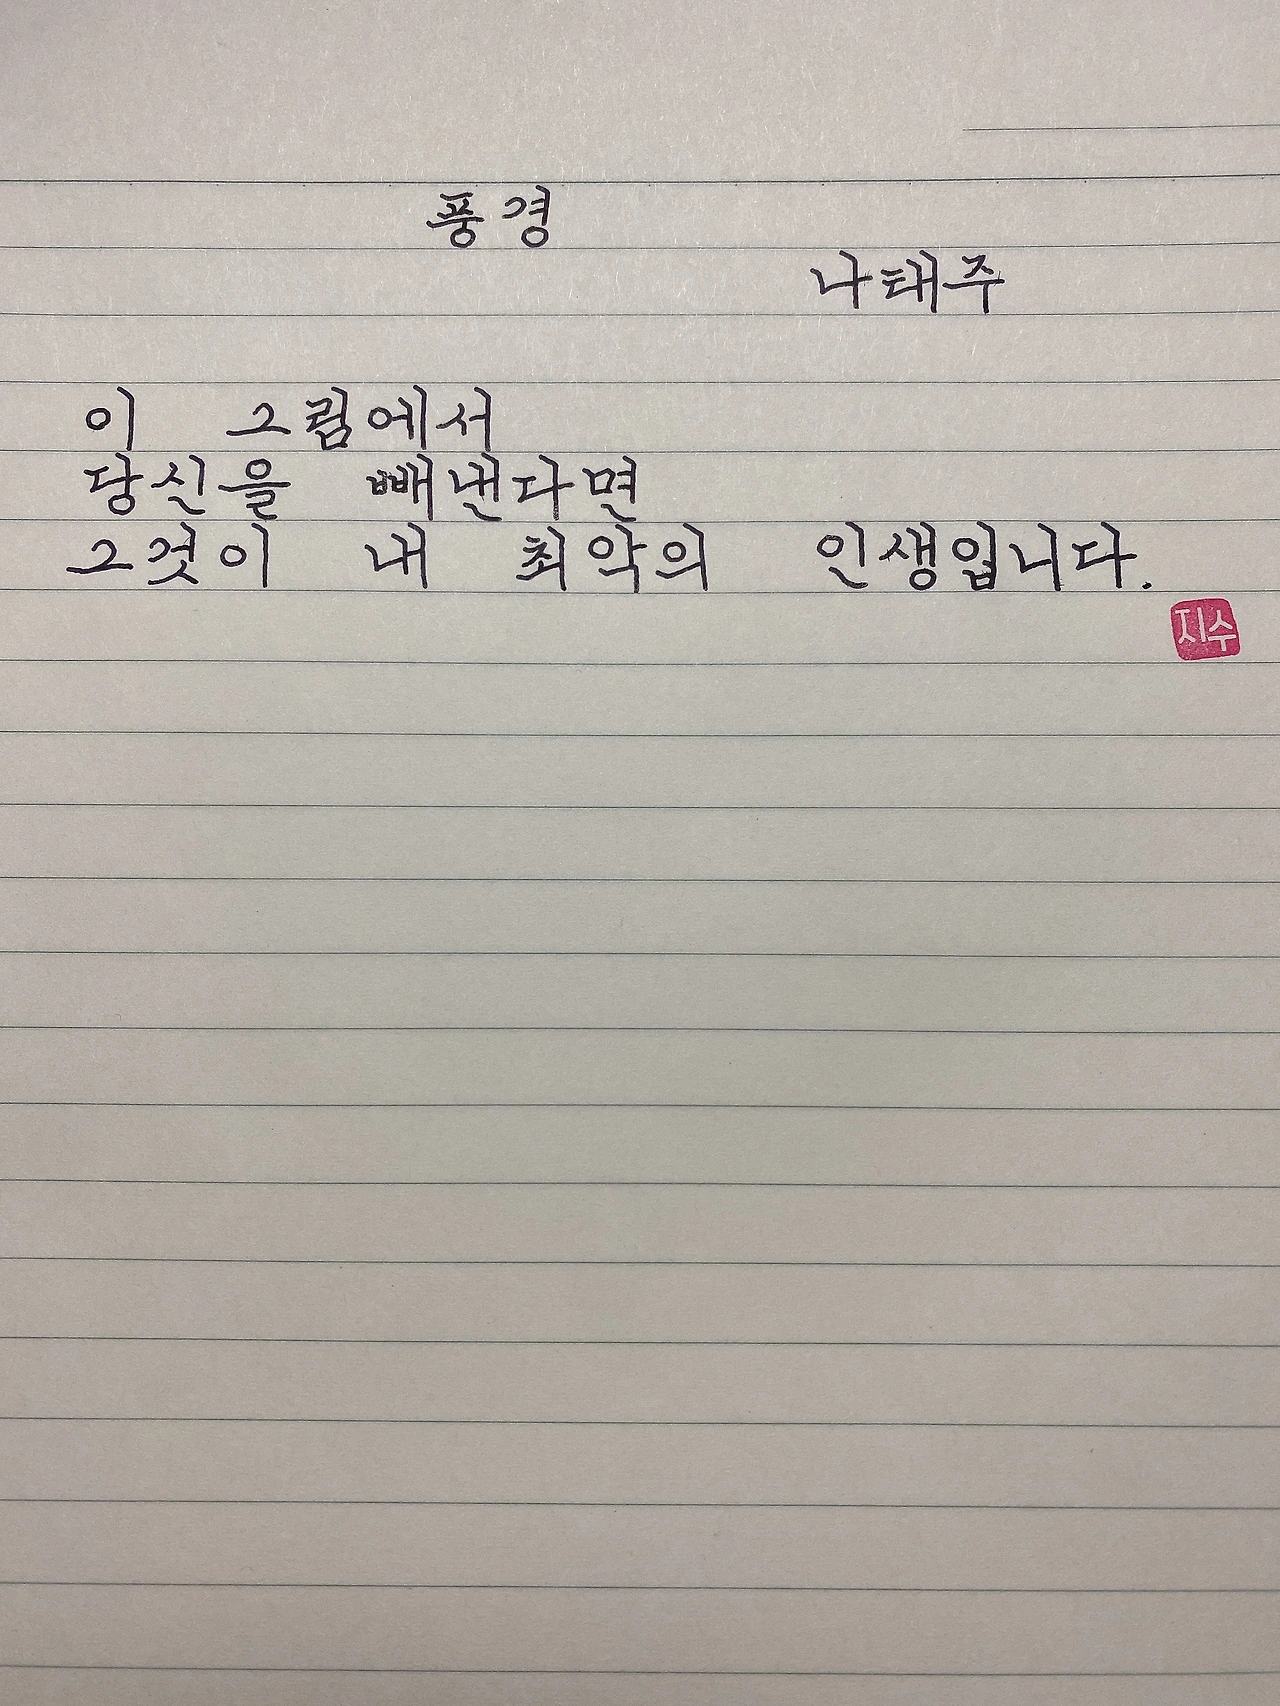 풍경
나태주
이 그림에서
당신을 빼낸다면
그것이 내 최악의 인생입니다.
지수